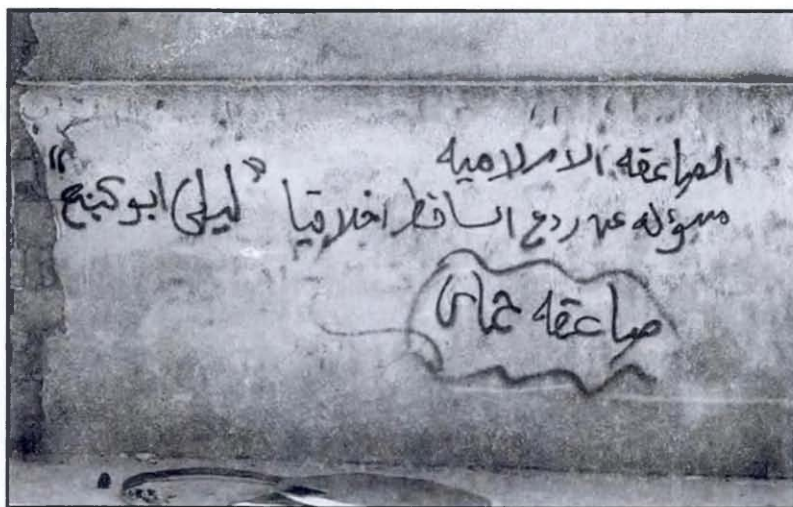 الصاعقه الاسلاميه
مسؤله عن ردع الساقط اخلاقيا "ليلى ابو كينج"
صاعقه حماس